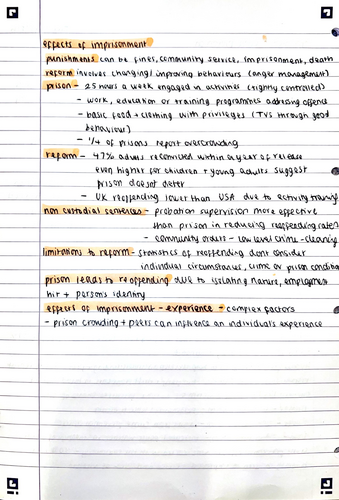 effects of imprisonment
punishments can be fines, community service, imprisonment, death
reform involves changing/improving behaviours (anger management)
prison - 25 hours a week engaged in activities (tightly controlled)
- work, education or training programmes addressing offence
- basic food + clothing with privileges (TVs through good
behaviour)
- 1/4 of prisons report overcrowding
reform - 47% adults reconvicted within a year of release
even higher for children + young adults suggest
prison doesnt deter
- UK reoffending lower than USA due to activity training
non custodial sentences - probation supervision more effective
than prison in reducing reoffending rates
- community orders - low level crime - cleaning
limitations to reform - statistics of reoffending dont consider
individual circumstances, crime or prison condition
prison leads to reoffending due to isolating nature, employment
hit + persons identity
effects of imprisonment - experience - complex factors
- prison crowding + peers can influence an individual's experience